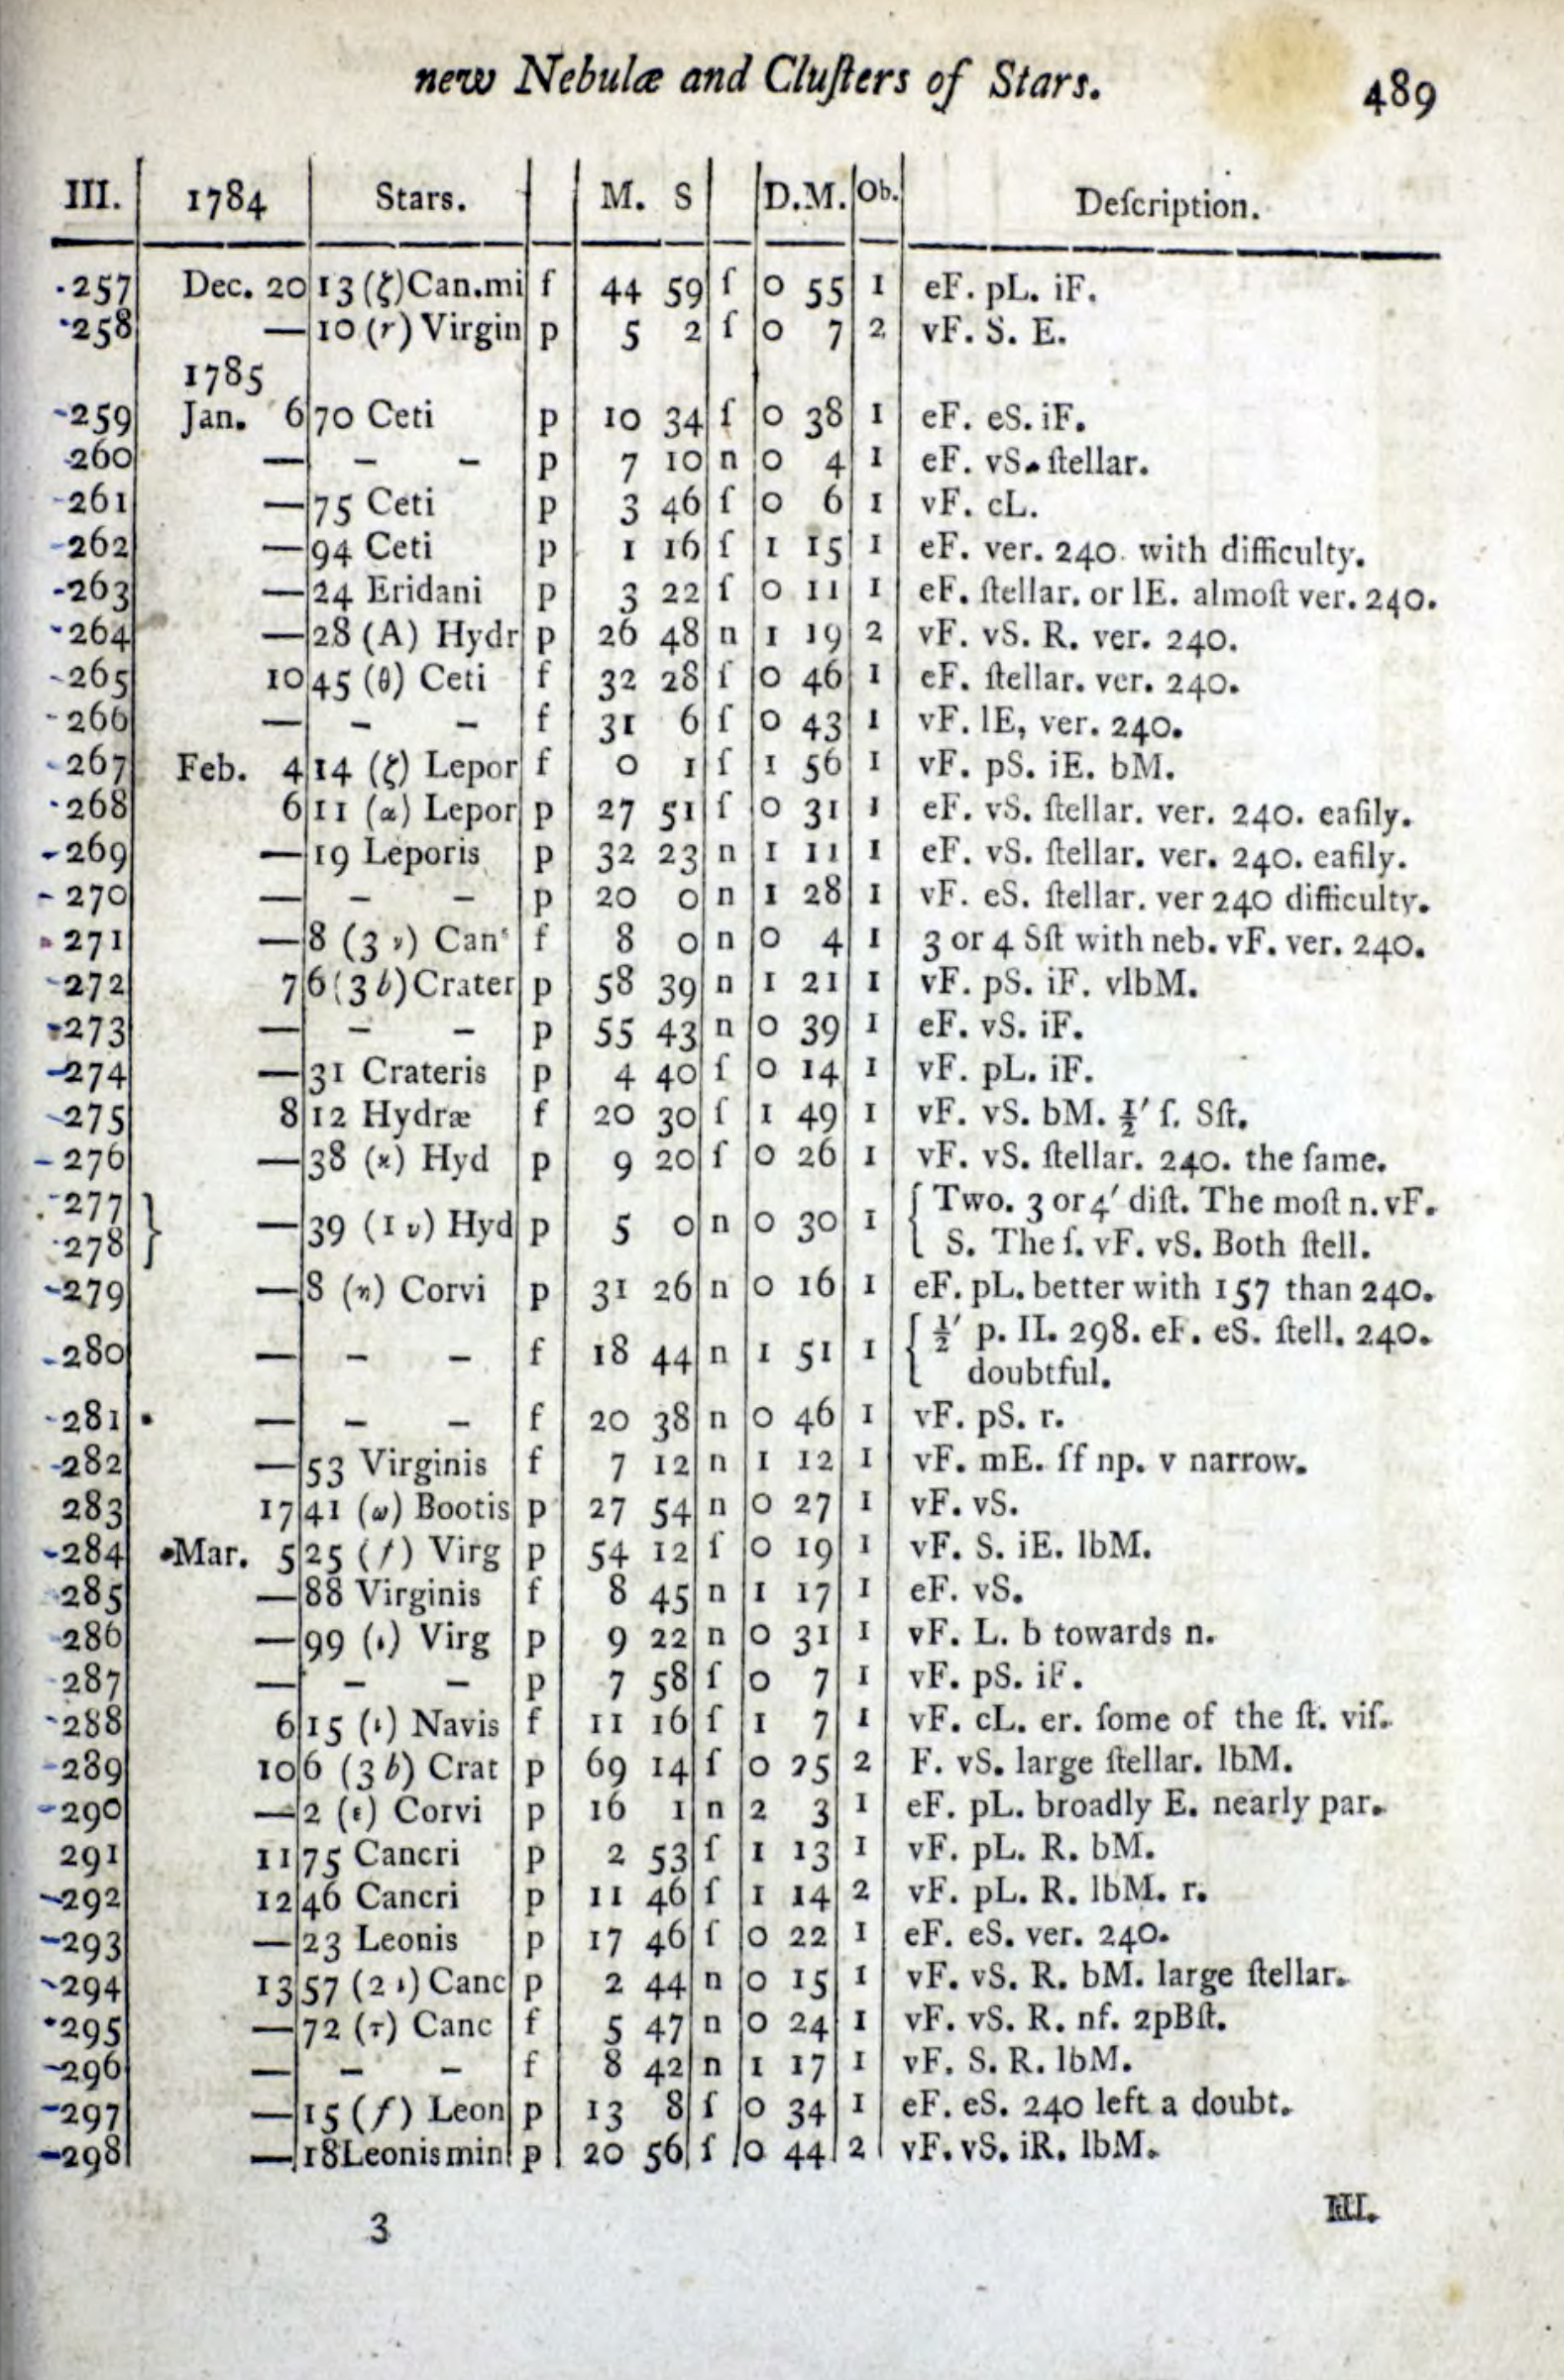 new Nebulæ and Cluſters of Stars. 489
III. 1784 Stars. M. S D.M. Ob. Deſcription.
257 Dec. 20 13 (ζ) Can.mi f 44 59 ſ 0 55 1 eF. pL. iF.
258 — 10 (r) Virgin p 5 2 ſ 0 7 2 vF. S. E.
1785
259 Jan. 6 70 Ceti p 10 34 ſ 0 38 1 eF. eS. iF.
260 — – – p 7 10 n 0 4 1 eF. vS. ſtellar.
261 — 75 Ceti p 3 46 ſ 0 6 1 vF. cL.
262 — 94 Ceti p 1 16 ſ 1 15 1 eF. ver. 240. with difficulty.
263 — 24 Eridani p 3 22 ſ 0 11 1 eF. ſtellar. or lE. almoſt ver. 240.
264 — 28 (A) Hydr p 26 48 n 1 19 2 vF. vS. R. ver. 240.
265 10 45 (θ) Ceti f 32 28 ſ 0 46 1 eF. ſtellar. ver. 240.
266 — – – f 31 6 ſ 0 43 1 vF. lE, ver. 240.
267 Feb. 4 14 (ζ) Lepor f 0 1 ſ 1 56 1 vF. pS. iE. bM.
268 6 11 (α) Lepor p 27 51 ſ 0 31 1 eF. vS. ſtellar. ver. 240. eaſily.
269 — 19 Leporis p 32 23 n 1 11 1 eF. vS. ſtellar. ver. 240. eaſily.
270 — – – p 20 0 n 1 28 1 vF. eS. ſtellar. ver 240 difficulty.
271 — 8 (3 ν) Canˢ f 8 0 n 0 4 1 3 or 4 Sſt with neb. vF. ver. 240.
272 7 6 (3 b) Crater p 58 39 n 1 21 1 vF. pS. iF. vlbM.
273 — – – p 55 43 n 0 39 1 eF. vS. iF.
274 — 31 Crateris p 4 40 ſ 0 14 1 vF. pL. iF.
275 8 12 Hydræ f 20 30 ſ 1 49 1 vF. vS. bM. ½′ ſ. Sſt.
276 — 38 (κ) Hyd p 9 20 ſ 0 26 1 vF. vS. ſtellar. 240. the ſame.
277 } { Two. 3 or 4′ diſt. The moſt n. vF.
278 } — 39 (1 υ) Hyd p 5 0 n 0 30 1 { S. The ſ. vF. vS. Both ſtell.
279 — 8 (η) Corvi p 31 26 n 0 16 1 eF. pL. better with 157 than 240.
280 — – – f 18 44 n 1 51 1 { ½′ p. II. 298. eF. eS. ſtell. 240.
doubtful.
281 — – – f 20 38 n 0 46 1 vF. pS. r.
282 — 53 Virginis f 7 12 n 1 12 1 vF. mE. ſf np. v narrow.
283 17 41 (ω) Bootis p 27 54 n 0 27 1 vF. vS.
284 Mar. 5 25 (f) Virg p 54 12 ſ 0 19 1 vF. S. iE. lbM.
285 — 88 Virginis f 8 45 n 1 17 1 eF. vS.
286 — 99 (ι) Virg p 9 22 n 0 31 1 vF. L. b towards n.
287 — – – p 7 58 ſ 0 7 1 vF. pS. iF.
288 6 15 (ι) Navis f 11 16 ſ 1 7 1 vF. cL. er. ſome of the ſt. viſ.
289 10 6 (3 b) Crat p 69 14 ſ 0 25 2 F. vS. large ſtellar. lbM.
290 — 2 (ε) Corvi p 16 1 n 2 3 1 eF. pL. broadly E. nearly par.
291 11 75 Cancri p 2 53 ſ 1 13 1 vF. pL. R. bM.
292 12 46 Cancri p 11 46 ſ 1 14 2 vF. pL. R. lbM. r.
293 — 23 Leonis p 17 46 ſ 0 22 1 eF. eS. ver. 240.
294 13 57 (2 ι) Canc p 2 44 n 0 15 1 vF. vS. R. bM. large ſtellar.
295 — 72 (τ) Canc f 5 47 n 0 24 1 vF. vS. R. nf. 2pBſt.
296 — – – f 8 42 n 1 17 1 vF. S. R. lbM.
297 — 15 (f) Leon p 13 8 ſ 0 34 1 eF. eS. 240 left a doubt.
298 — 18 Leonis min p 20 56 ſ 0 44 2 vF. vS. iR. lbM.
3 III.